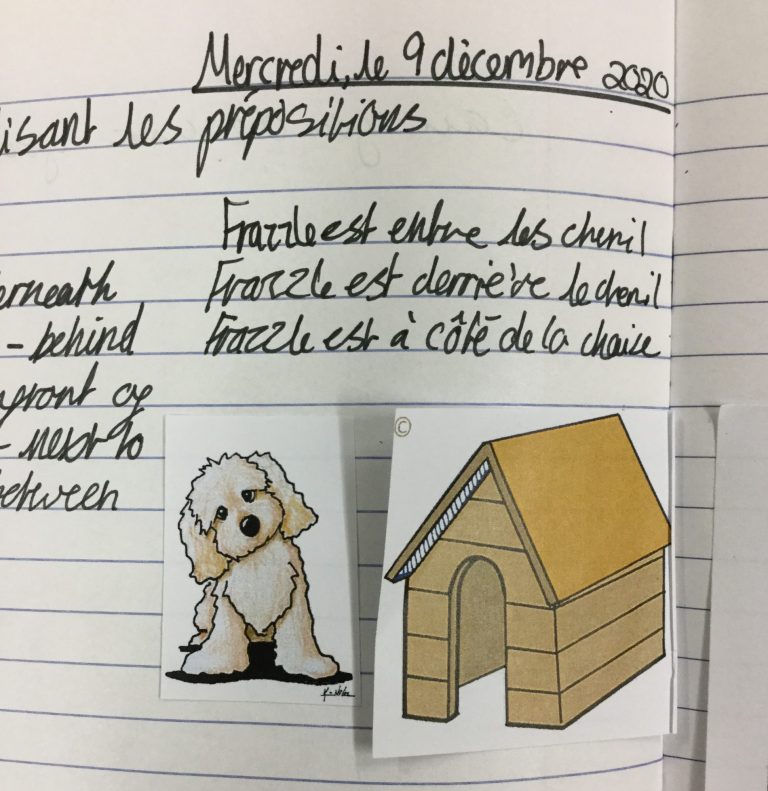 Mercredi, le 9 décembre 2020
isant les prépositions
Frazzle est entre les chenil
erneath Frazzle est derrière le chenil
- behind Frazzle est à côté de la chaise
nfront of
- next to
between
©